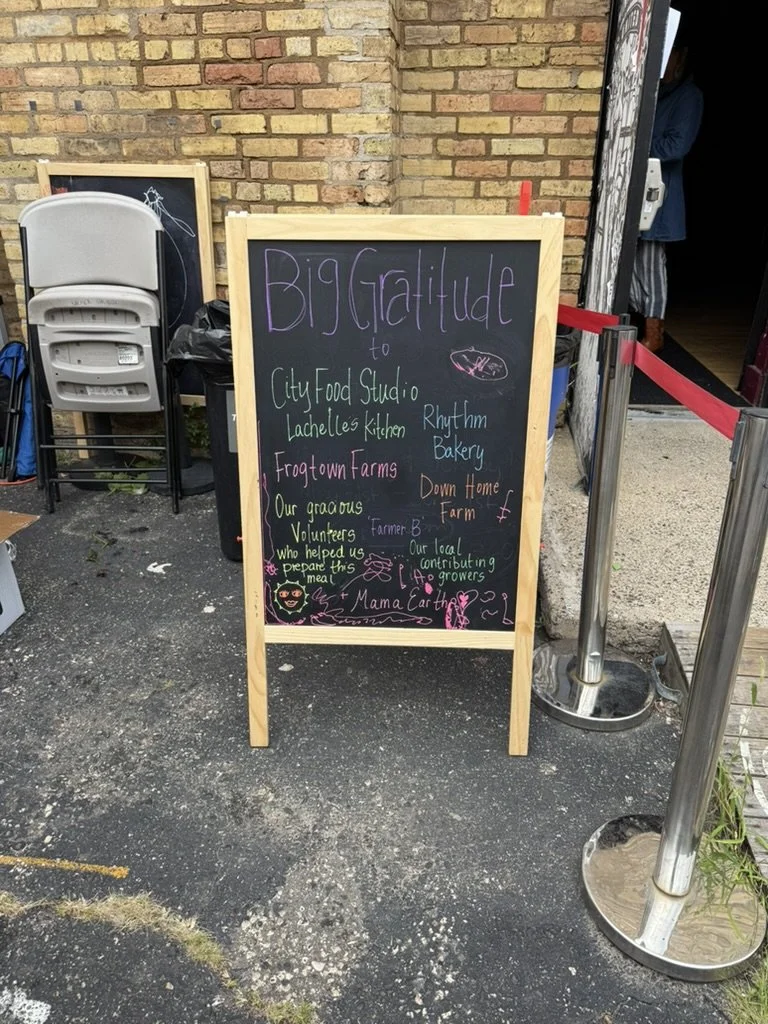 Big Gratitude
to
City Food Studio
Lachelle's Kitchen
Frogtown Farms
Our gracious
Volunteers
who helped us
prepare this
meal
Rhythm
Bakery
Down Home
Farm
Farmer B
Our local
contributing
growers
+ Mama Earth